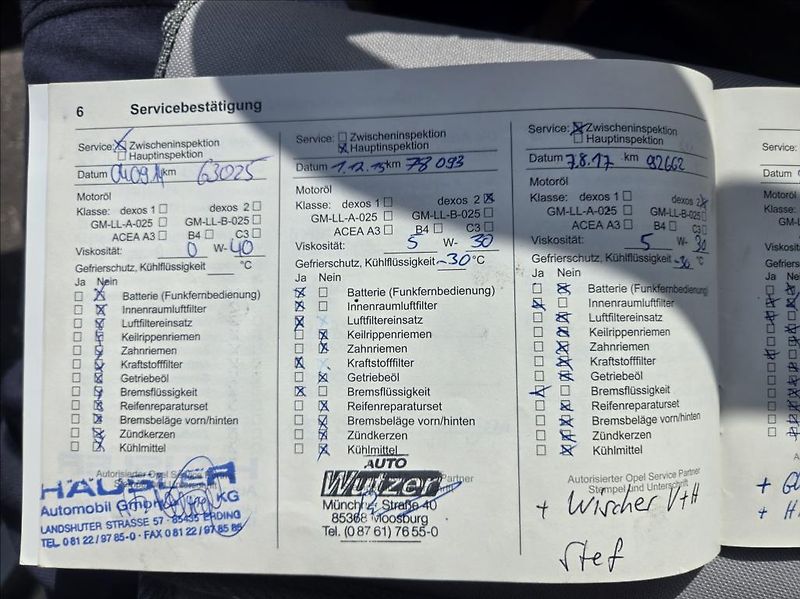 6 Servicebestätigung
Service: ☒ Zwischeninspektion
☐ Hauptinspektion
Datum km 63025
Motoröl
Klasse: dexos 1 ☐ dexos 2 ☐
GM-LL-A-025 ☐ GM-LL-B-025 ☐
ACEA A3 ☐ B4 ☐ C3 ☐
Viskosität: 0 W- 40
Gefrierschutz, Kühlflüssigkeit °C
Ja Nein
☐ ☒ Batterie (Funkfernbedienung)
☐ ☒ Innenraumluftfilter
☐ ☒ Luftfiltereinsatz
☐ ☒ Keilrippenriemen
☐ ☒ Zahnriemen
☐ ☒ Kraftstofffilter
☐ ☒ Getriebeöl
☐ ☒ Bremsflüssigkeit
☐ ☒ Reifenreparaturset
☐ ☒ Bremsbeläge vorn/hinten
☐ ☒ Zündkerzen
☐ ☒ Kühlmittel
Autorisierter Opel Service
HÄUSLER
Automobil GmbH KG
LANDSHUTER STRASSE 57 · 85435 ERDING
TEL. 0 81 22 / 97 85-0 · FAX 0 81 22 / 97 85 85
Service: ☐ Zwischeninspektion
☒ Hauptinspektion
Datum 1.12.15 km 78 093
Motoröl
Klasse: dexos 1 ☐ dexos 2 ☒
GM-LL-A-025 ☐ GM-LL-B-025 ☐
ACEA A3 ☐ B4 ☐ C3 ☐
Viskosität: 5 W- 30
Gefrierschutz, Kühlflüssigkeit -30 °C
Ja Nein
☒ ☐ Batterie (Funkfernbedienung)
☒ ☐ Innenraumluftfilter
☒ ☐ Luftfiltereinsatz
☐ ☒ Keilrippenriemen
☐ ☒ Zahnriemen
☒ ☐ Kraftstofffilter
☐ ☒ Getriebeöl
☒ ☐ Bremsflüssigkeit
☐ ☒ Reifenreparaturset
☐ ☒ Bremsbeläge vorn/hinten
☐ ☒ Zündkerzen
☐ ☒ Kühlmittel
Partner
AUTO
Wutzer
Münchn. Straße 40
85368 Moosburg
Tel. (0 87 61) 76 55-0
Service: ☒ Zwischeninspektion
☐ Hauptinspektion
Datum 7.8.17 km 92662
Motoröl
Klasse: dexos 1 ☐ dexos 2 ☒
GM-LL-A-025 ☐ GM-LL-B-025 ☐
ACEA A3 ☐ B4 ☐ C3 ☐
Viskosität: 5 W- 30
Gefrierschutz, Kühlflüssigkeit -30 °C
Ja Nein
☐ ☒ Batterie (Funkfernbedienung)
☒ ☐ Innenraumluftfilter
☐ ☒ Luftfiltereinsatz
☐ ☒ Keilrippenriemen
☐ ☒ Zahnriemen
☐ ☒ Kraftstofffilter
☐ ☒ Getriebeöl
☒ ☐ Bremsflüssigkeit
☐ ☒ Reifenreparaturset
☐ ☒ Bremsbeläge vorn/hinten
☐ ☒ Zündkerzen
☐ ☒ Kühlmittel
Autorisierter Opel Service Partner
Stempel und Unterschrift
+ Wischer V+H
Stef
Service:
Datum
Motoröl
Klasse:
Viskosität:
Gefrierschutz
Ja Nein